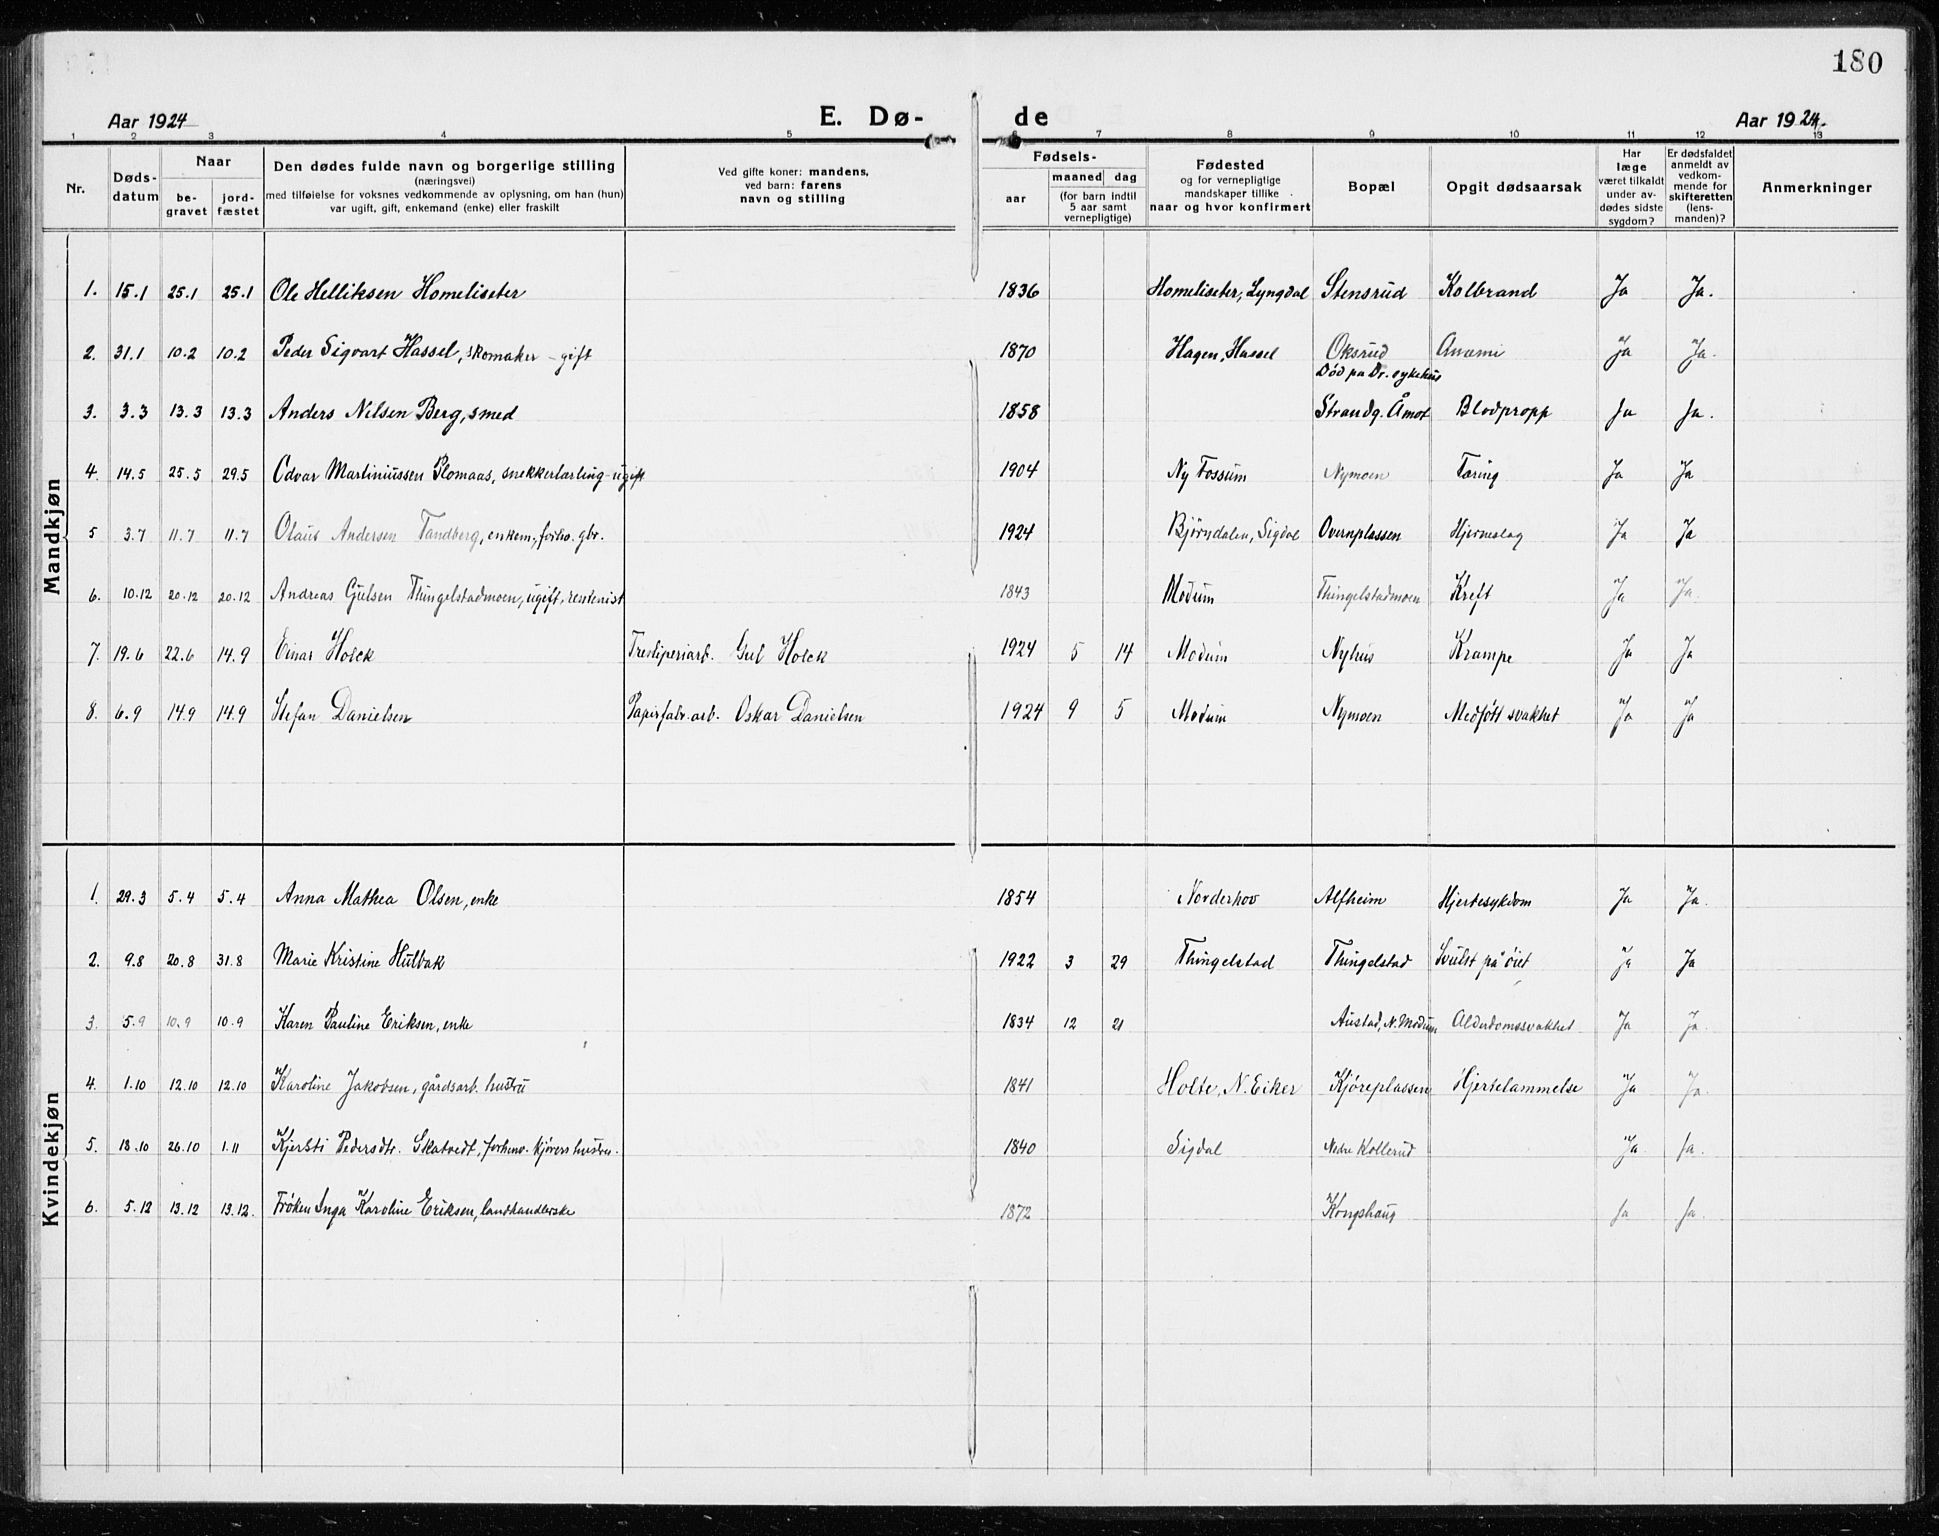 180
Aar 1924 E. Dø- de Aar 1924.
1 2 3 4 5 6 7 8 9 10 11 12 13
Nr. Døds-datum Naar be-gravet jord-fæstet Den dødes fulde navn og borgerlige stilling (næringsvei) med tilføielse for voksnes vedkommende av oplysning, om han (hun) var ugift, gift, enkemand (enke) eller fraskilt Ved gifte koner: mandens, ved barn: farens navn og stilling Fødsels- aar maaned dag (for barn indtil 5 aar samt vernepligtige) Fødested og for vernepligtige mandskaper tillike naar og hvor konfirmert Bopæl Opgit dødsaarsak Har læge været tilkaldt under av-dødes sidste sygdom? Er dødsfaldet anmeldt av vedkom-mende for skifteretten (lens-manden)? Anmerkninger
Mandkjøn
1. 15.1 25.1 25.1 Ole Helliksen Homeliseter 1836 Homeliseter, Lyngdal Stensrud Kolbrand Ja Ja.
2. 31.1 10.2 10.2 Peder Sigvart Hassel, skomaker - gift 1870 Hagen, Hassel Oksrud Anæmi Ja Ja.
Død på Dr. sykehus
3. 3.3 13.3 13.3 Anders Nilsen Berg, smed 1858 Strandg. Åmot Blodpropp Ja Ja.
4. 14.5 25.5 29.5 Odvar Martiniussen Plomaas, snekkerlærling - ugift 1904 Ny Fossum Nymoen Tæring Ja Ja
5 3.7 11.7 11.7 Olaus Andersen Tandberg, enkem, forhv. gbr. 1924 Bjørndalen, Sigdal Overnplassen Hjerneslag Ja Ja
6. 10.12 20.12 20.12 Andreas Gulsen Thingelstadmoen, ugift, rentenist 1843 Modum Thingelstadmoen Kreft Ja Ja.
7. 19.6 22.6 14.9 Einar Holck Tresliperiarb. Gul Holck 1924 5 14 Modum Nyhus Krampe Ja Ja
8. 6.9 14.9 14.9 Stefan Danielsen Papirfabr.arb. Oskar Danielsen 1924 9 5 Modum Nymoen Medfött svakhet Ja Ja
Kvindekjøn
1. 29.3 5.4 5.4 Anna Mathea Olsen, enke 1854 Norderhov Alfheim Hjertesykdom Ja Ja.
2. 9.8 20.8 31.8 Marie Kristine Hulbak 1922 3 29 Thingelstad Thingelstad Svulst på öiet Ja Ja
3. 5.9 10.9 10.9 Karen Pauline Eriksen, enke 1834 12 21 Austad, N. Modum Alderdomssvakhet Ja Ja.
4. 1.10 12.10 12.10 Karoline Jakobsen, gårdsarb. hustru 1841 Holte, N. Eiker Kjøreplassen Hjertelammelse Ja Ja.
5. 18.10 26.10 1.11 Kjersti Pedersdtr. Skatvedt, forhenv. kjörers hustru. 1840 Sigdal Nedre Kollerud Ja Ja.
6. 5.12 13.12 13.12. Frøken Inga Karoline Eriksen, landhandlerske 1872 Kongshaug Ja Ja.